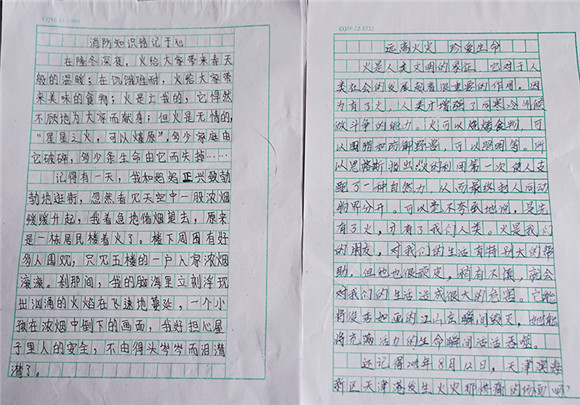 消防知识铭记于心
在隆冬深夜，火给大家带来春天
般的温暖；在饥饿难耐，火给大家带
来美味的食物；火是上我的，它悍然
不顾地为大家而献身；但火是无情的，
“星星之火，可以燎原”，多少家庭由
它破碎，多少条生命由它而失掉……
记得有一天，我和妈妈正兴致勃
勃地逛街，忽然看见天空中一股浓烟
缓缓升起，我着急地循烟望去，原来
是一栋居民楼着火了。楼下周围有好
多人围观，只见五楼的一户人家浓烟
滚滚。刹那间，我的脑海里立刻浮现
出汹涌的火焰在飞速地蔓延，一个小
孩在浓烟中倒下的画面，我好担心屋
子里人的安生，不由得头岑岑而泪潸
潸了。
远离火灾 珍爱生命
火是人类文明的象征，它对于人
类社会的发展起着很重要的作用，因
为有了火，人类才增强了同寒冷
做斗争的能力。火可以烧烤食物，可
以围猎和防御野兽，可以照明等。所
以恩格斯指出
了一种自然力，从而最终把人同动
物界分开。可以毫不夸张地说，是先
有了火，才有了我们人类。火是我们
的朋友，对我们的生活有特别大的帮
助，但他也很顽皮，稍有不慎，就会
对我们的生活造成很大的危害。它能
将使美如画的江山在瞬间毁灭，她能
将充满活力的生命瞬间活活吞噬。
还记得2015年8月12日，天津滨海
新区天津港发生火灾那